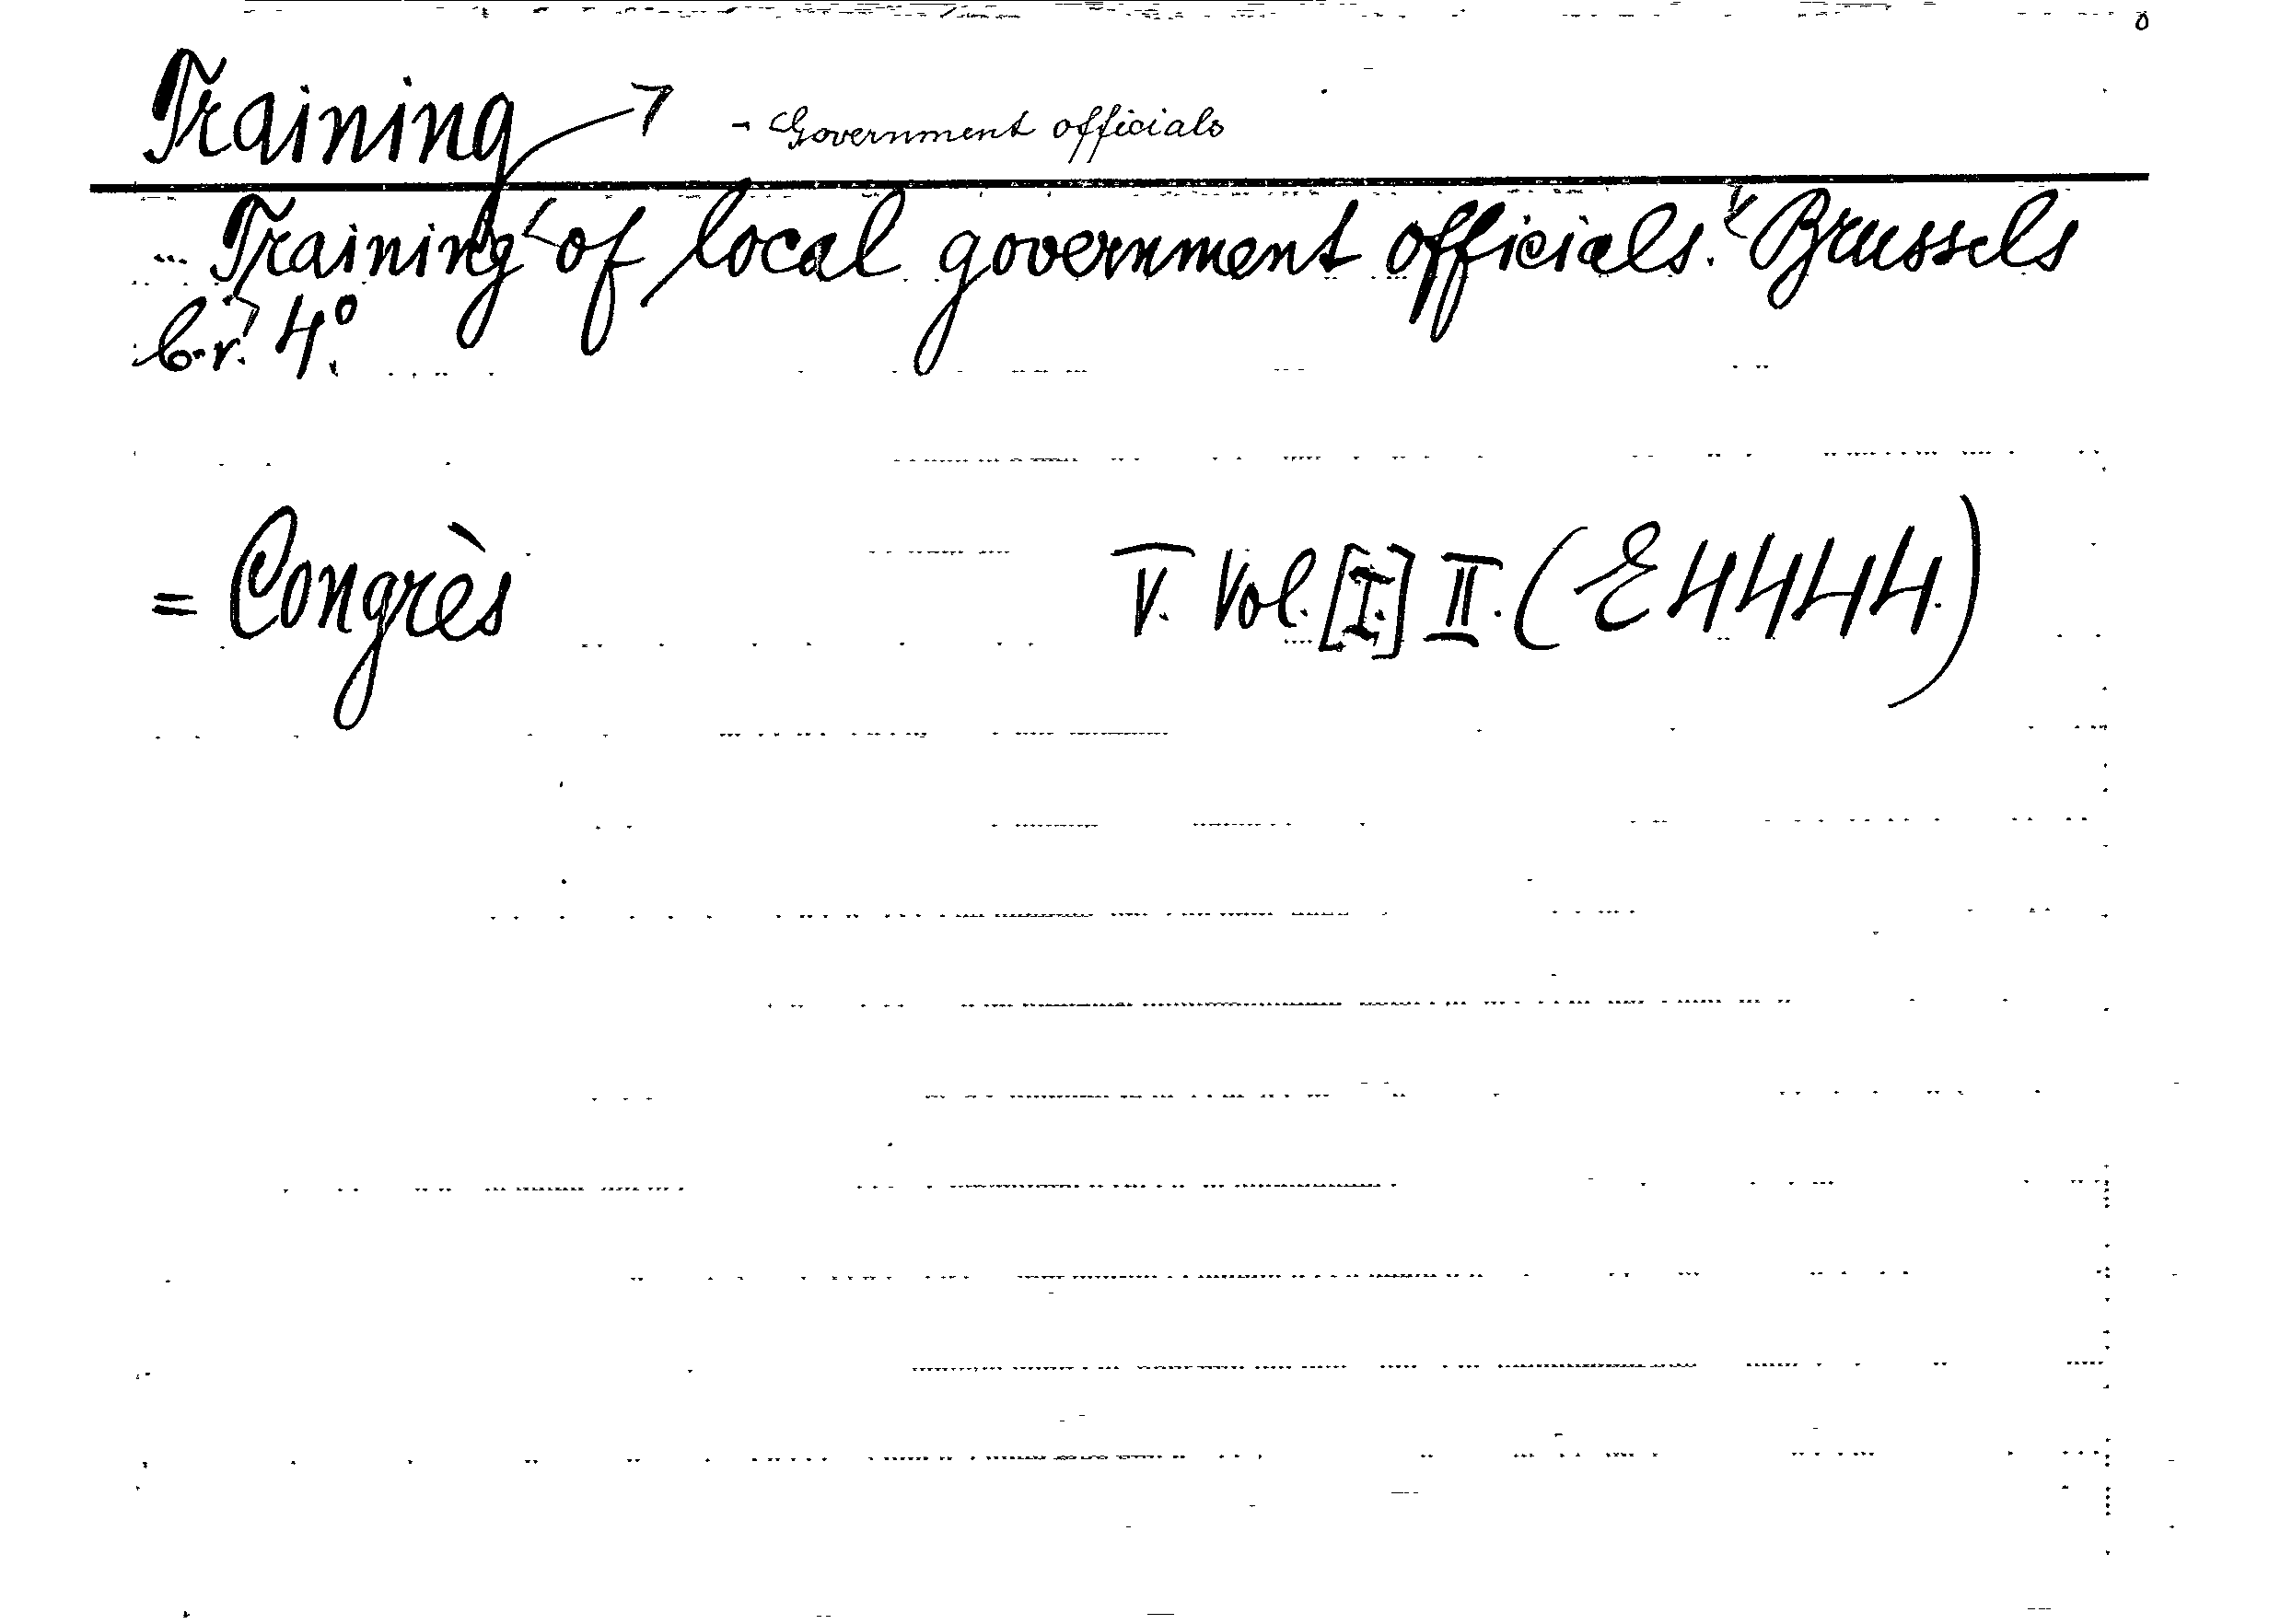 Training - Government officials
... Training of local government officials. Brussels
b.r. 4°.
= Congrès V. Vol. [I.] II. (E4444.)